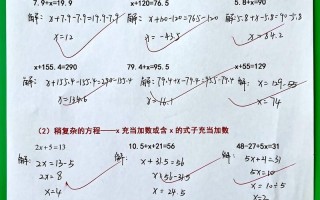 7.9+x=19.9
x+120=76.5
5.8+x=90
解: x+7.9-7.9=19.9-7.9
解: x+120-120=76.5-120
解: 5.8+x-5.8=90-5.8
x=12
x=-43.5
x=84.2
x+155.4=290
79.4+x=95.5
x+55=129
解: x+155.4-155.4=290-155.4
解: 79.4+x-79.4=95.5-79.4
解: x=129-55
x=134.6
x=16.1
x=74
(2)稍复杂的方程——x 充当加数或含 x 的式子充当加数
2x+5=13
10.5+x+21=56
48-27+5x=31
解: 2x=13-5
解: x+31.5=56
解: 5x+21=31
2x=8
x=56-31.5
5x=10
x=4
x=24.5
x=10÷5
x=2